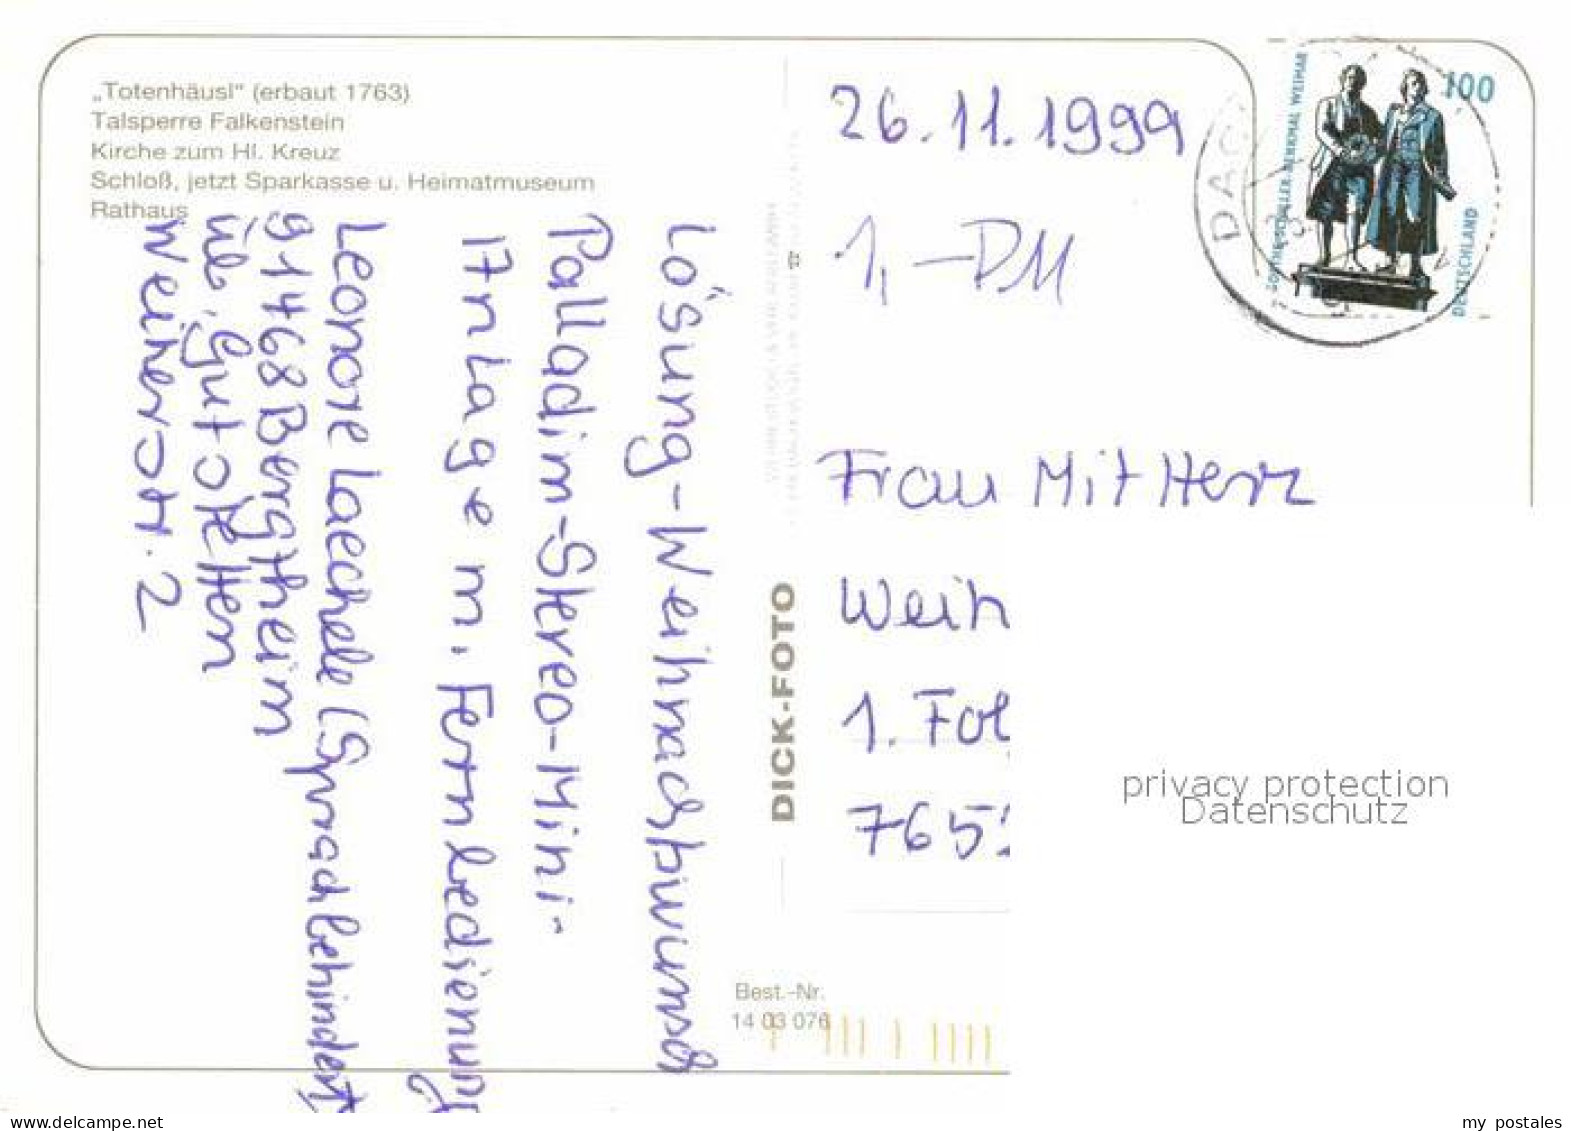 „Totenhäusl" (erbaut 1763)
Talsperre Falkenstein
Kirche zum Hl. Kreuz
Schloß, jetzt Sparkasse u. Heimatmuseum
Rathaus
Lösung-Weihnachtwunsch
Palladim-Stereo-Mini-
Anlage m. Fernbedienung
Leonore Laechele (Sprachbehindert)
91468 Bergtheim
üb, Gutstetten
Weiherstr. 2
DICK-FOTO
Best.-Nr.
14 03 076
26.11.1999
1,-DM
Frau Mit Herz
Weih
1. Fol
765
100
GOETHE-SCHILLER-DENKMAL WEIMAR
DEUTSCHLAND
privacy protection
Datenschutz
www.delcampe.net
my_postales